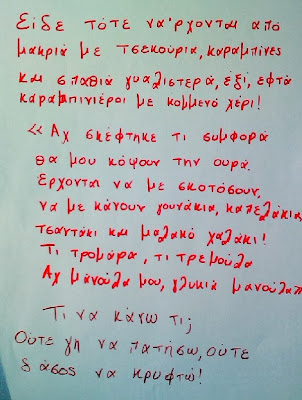 Είδε τότε να'ρχονται από
μακριά με τσεκούρια, καραμπίνες
και σπαθιά γυαλιστερά, έξι, εφτά
καραμπινιέροι με κομμένο χέρι!
<< Αχ σκέφτηκε τι συμφορά
θα μου κόψουν την ουρά.
Έρχονται να με σκοτώσουν,
να με κάνουν γουνάκια, καπελάκια,
τσαντάκι και μαλακό χαλάκι!
Τι τρομάρα, τι τρεμούλα
Αχ μανούλα μου, γλυκιά μανούλα
Τι να κάνω τι;
Ούτε γη να πατήσω, ούτε
δάσος να κρυφτώ!